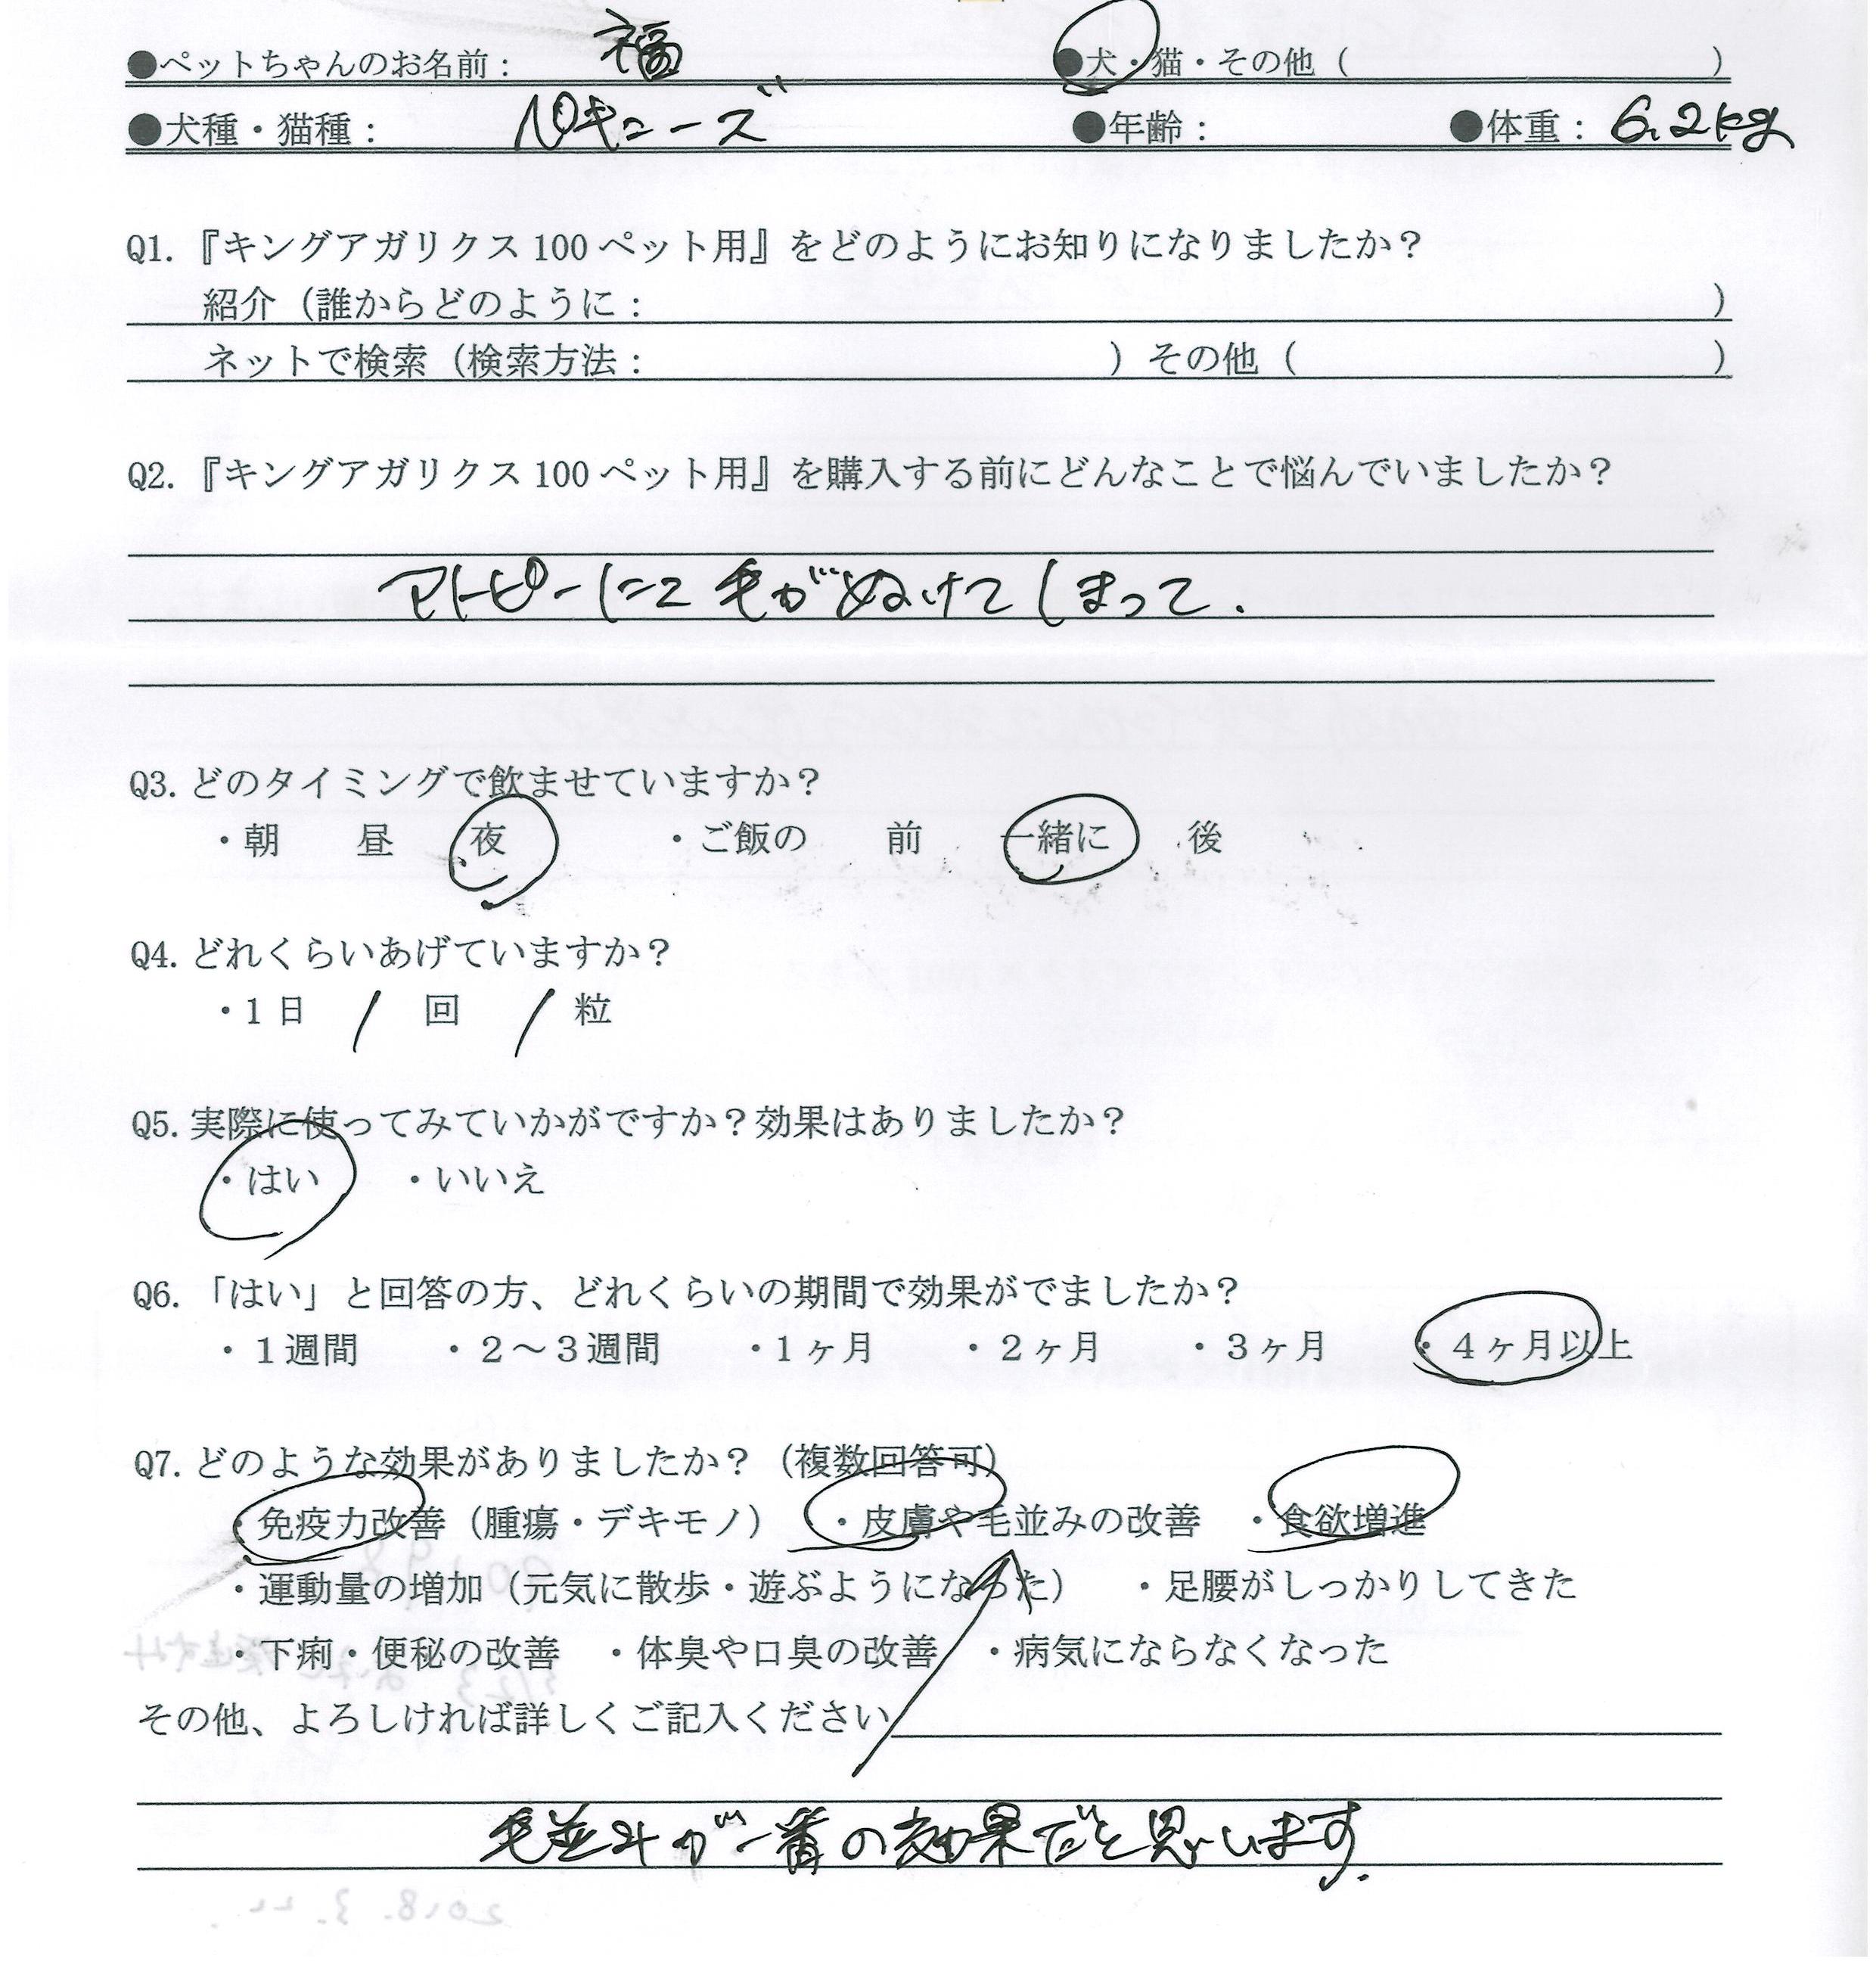 ●ペットちゃんのお名前： 福 ●犬・猫・その他（ ）
●犬種・猫種： ペキニーズ ●年齢： ●体重： 6.2kg
Q1.『キングアガリクス100ペット用』をどのようにお知りになりましたか？
紹介（誰からどのように： ）
ネットで検索（検索方法： ）その他（ ）
Q2.『キングアガリクス100ペット用』を購入する前にどんなことで悩んでいましたか？
アトピーにて毛がぬけてしまって.
Q3.どのタイミングで飲ませていますか？
・朝 昼 夜 ・ご飯の 前 一緒に 後
Q4.どれくらいあげていますか？
・1日 / 回 / 粒
Q5.実際に使ってみていかがですか？効果はありましたか？
・はい ・いいえ
Q6.「はい」と回答の方、どれくらいの期間で効果がでましたか？
・１週間 ・２～３週間 ・１ヶ月 ・２ヶ月 ・３ヶ月 ・４ヶ月以上
Q7.どのような効果がありましたか？（複数回答可）
・免疫力改善（腫瘍・デキモノ） ・皮膚や毛並みの改善 ・食欲増進
・運動量の増加（元気に散歩・遊ぶようになった） ・足腰がしっかりしてきた
・下痢・便秘の改善 ・体臭や口臭の改善 ・病気にならなくなった
その他、よろしければ詳しくご記入ください
毛並みが一番の効果だと思います.
2018.3.22.